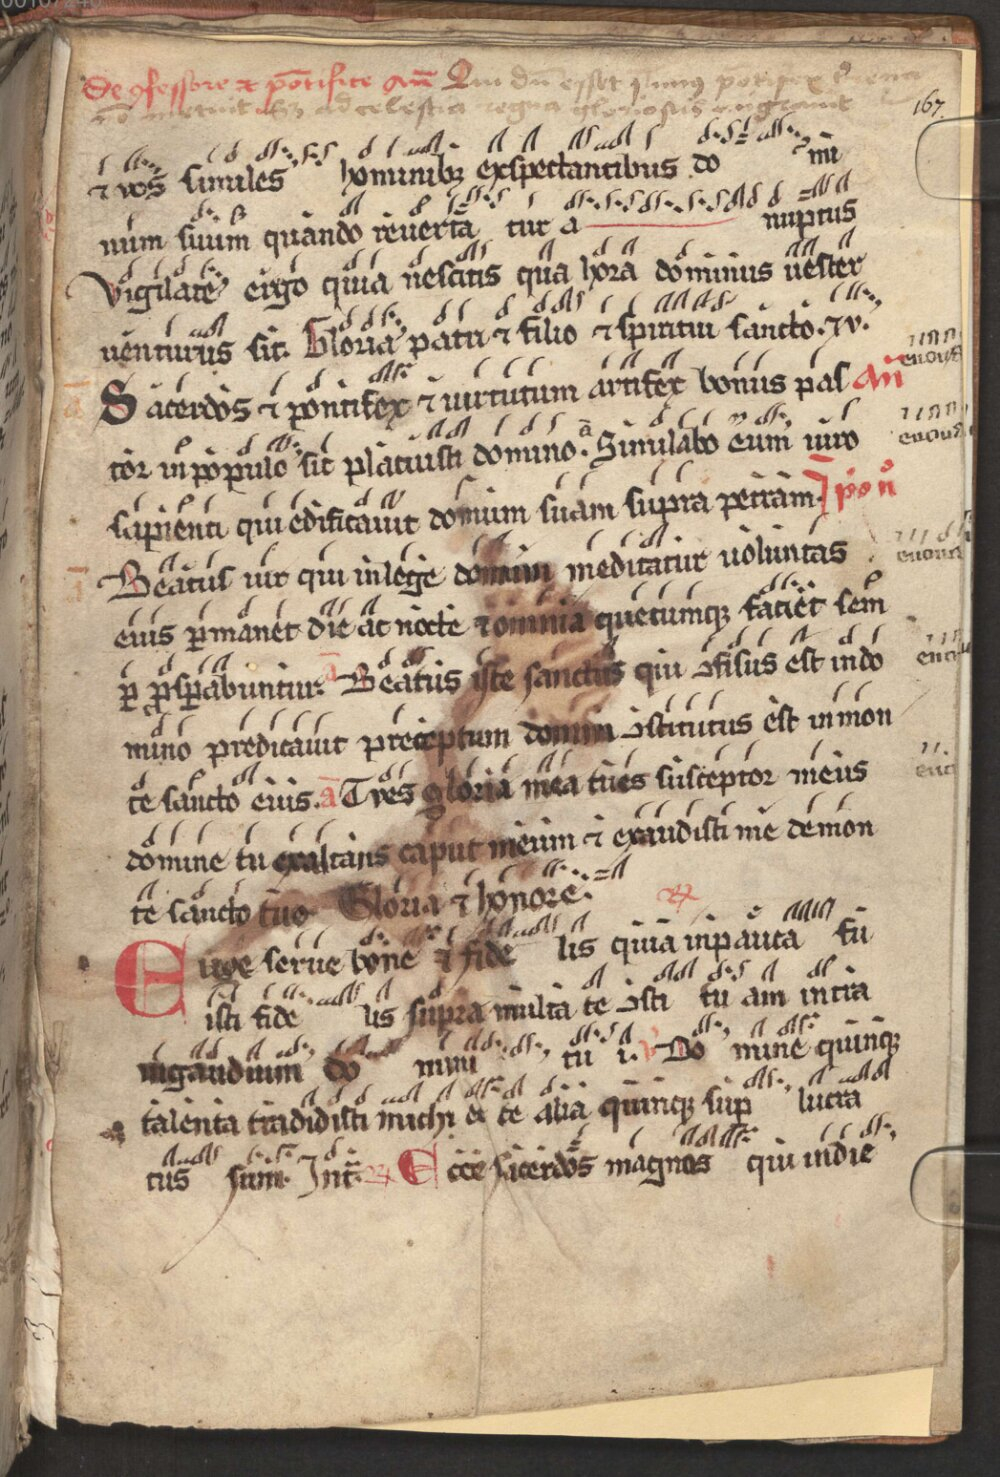 De ɔfessore et pōtifice An̄ Qui dū esset sūmꝰ pōtifex t̉rena
nō metuit sꝫ ad celestia regna gloriosus migrauit
167
⁊ vos similes hominibꝫ exspectantibus do mi
num suum quando reuerta tur a nuptus
Vigilate ergo quia nescitis qua hora dominus uester
uenturus sit. Gloria patri ⁊ filio ⁊ spiritui sancto. ⁊ v.
Sacerdos ⁊ pontifex ⁊ uirtutum artifex bonus pas An̄
tor in populo sic placuisti domino. ā Similabo eum uiro
sapienti qui edificauit domum suam supra petram.
Beatus uir qui in lege domini meditatur uoluntas
eius ꝑmanet die ac nocte ⁊ omnia quecumqꝫ faciet sem
ꝑ ꝓsꝑabuntur. ā Beatus iste sanctus qui ɔfisus est in do
mino predicauit preceptum domini ɔstitutus est in mon
te sancto eius. ā Tu es gloria mea tu es susceptor meus
domine tu exaltans caput meum ⁊ exaudisti me de mon
te sancto tuo Gloria ⁊ honore.
Euge serue bone ⁊ fide lis quia in pauca fu
isti fide lis supra multa te ɔsti tu am intra
in gaudium do mini tu i. V Do mine quinqꝫ
talenta tradidisti michi ecce alia quinqꝫ sup̄ lucra
tus sum. Int̄. Ecce sacerdos magnus qui in die